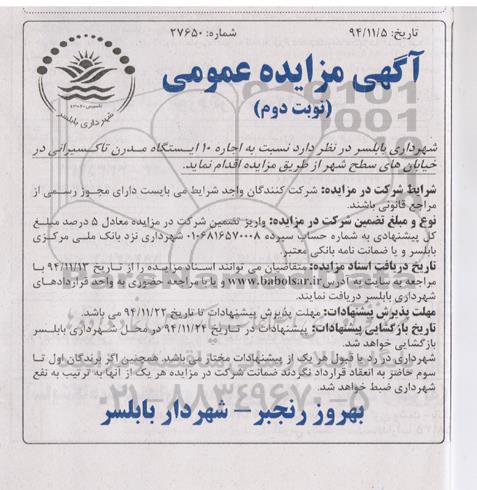 تاریخ: ۹۴/۱۱/۵
شماره: ۲۷۶۵۰
آگهی مزایده عمومی
(نوبت دوم)
شهرداری بابلسر
شهرداری بابلسر در نظر دارد نسبت به اجاره ۱۰ ایستگاه مدرن تاکسیرانی در
خیابان های سطح شهر از طریق مزایده اقدام نماید.
شرایط شرکت در مزایده: شرکت کنندگان واجد شرایط می بایست دارای مجوز رسمی از
مراجع قانونی باشند.
نوع و مبلغ تضمین شرکت در مزایده: واریز تضمین شرکت در مزایده معادل ۵ درصد مبلغ
کل پیشنهادی به شماره حساب سپرده ۰۱۰۶۸۱۶۵۷۰۰۰۸ شهرداری نزد بانک ملی مرکزی
بابلسر و یا ضمانت نامه بانکی معتبر.
تاریخ دریافت اسناد مزایده: متقاضیان می توانند اسناد مزایده را از تاریخ ۹۴/۱۱/۱۳ با
مراجعه به سایت به آدرس www.babolsar.ir و یا با مراجعه حضوری به واحد قراردادهای
شهرداری بابلسر دریافت نمایند.
مهلت پذیرش پیشنهادات: مهلت پذیرش پیشنهادات تا تاریخ ۹۴/۱۱/۲۲ می باشد.
تاریخ بازگشایی پیشنهادات: پیشنهادات در تاریخ ۹۴/۱۱/۲۴ در محل شهرداری بابلسر
بازگشایی خواهد شد.
شهرداری در رد یا قبول هر یک از پیشنهادات مختار می باشد. همچنین اگر برندگان اول تا
سوم حاضر به انعقاد قرارداد نگردند ضمانت شرکت در مزایده هر یک از آنها به ترتیب به نفع
شهرداری ضبط خواهد شد.
بهروز رنجبر – شهردار بابلسر
۰۲۱-۸۸۳۴۹۶۷۰-۵